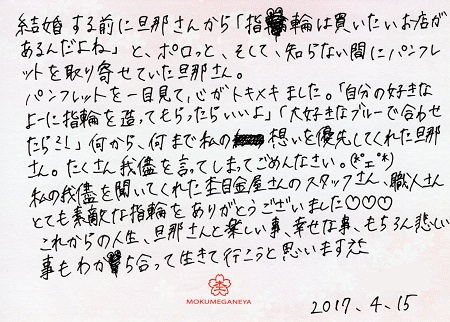 結婚する前に旦那さんから「指輪は買いたいお店が
あるんだよね」と、ポロっと、そして、知らない間にパンフレ
ットを取り寄せていた旦那さん。
パンフレットを一目見て、心がトキメキました。「自分の好きな
よーに指輪を造ってもらったらいいよ」「大好きなブルーで合わせ
たら？！」何から、何まで私の想いを優先してくれた旦那
さん。たくさん我儘を言ってしまってごめんなさい。
私の我儘を聞いてくれた杢目金屋さんのスタッフさん、職人さん
とても素敵な指輪をありがとうございました♡♡♡
これからの人生、旦那さんと楽しい事、幸せな事、もちろん悲しい
事もわかち合って生きて行こうと思います
MOKUMEGANEYA
2017.4.15